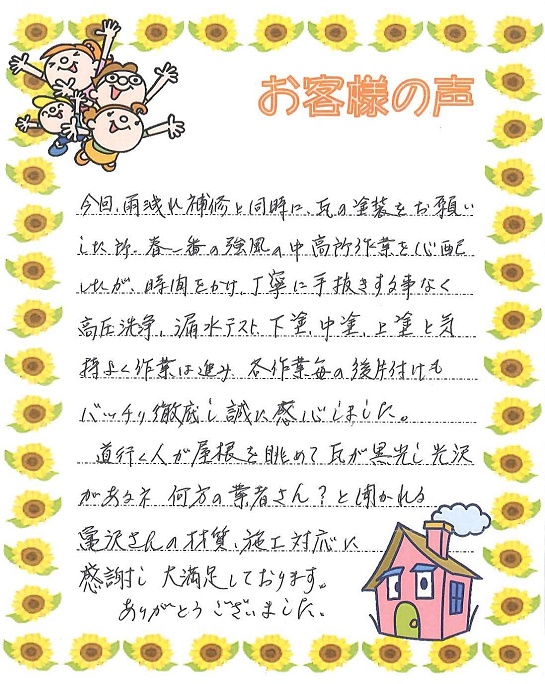 お客様の声
今回、雨洩れ補修と同時に、瓦の塗装をお願い
した所、春一番の強風の中高所作業を心配
したが、時間をかけ、丁寧に手抜きする事なく
高圧洗浄、漏水テスト、下塗、中塗、上塗と気
持よく作業は進み、各作業毎の後片付けも
バッチリ徹底し誠に感心しました。
道行く人が屋根を眺めて瓦が黒光し光沢
があるネ 何方の業者さん?と聞かれる
亀沢さんの材質、施工対応に
感謝し 大満足しております。
ありがとうございました。